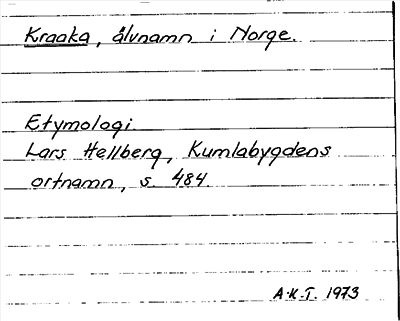 Kraaka, älvnamn i Norge.
Etymologi
Lars Hellberg, Kumlabygdens
ortnamn, s. 484.
A.K.T. 1973